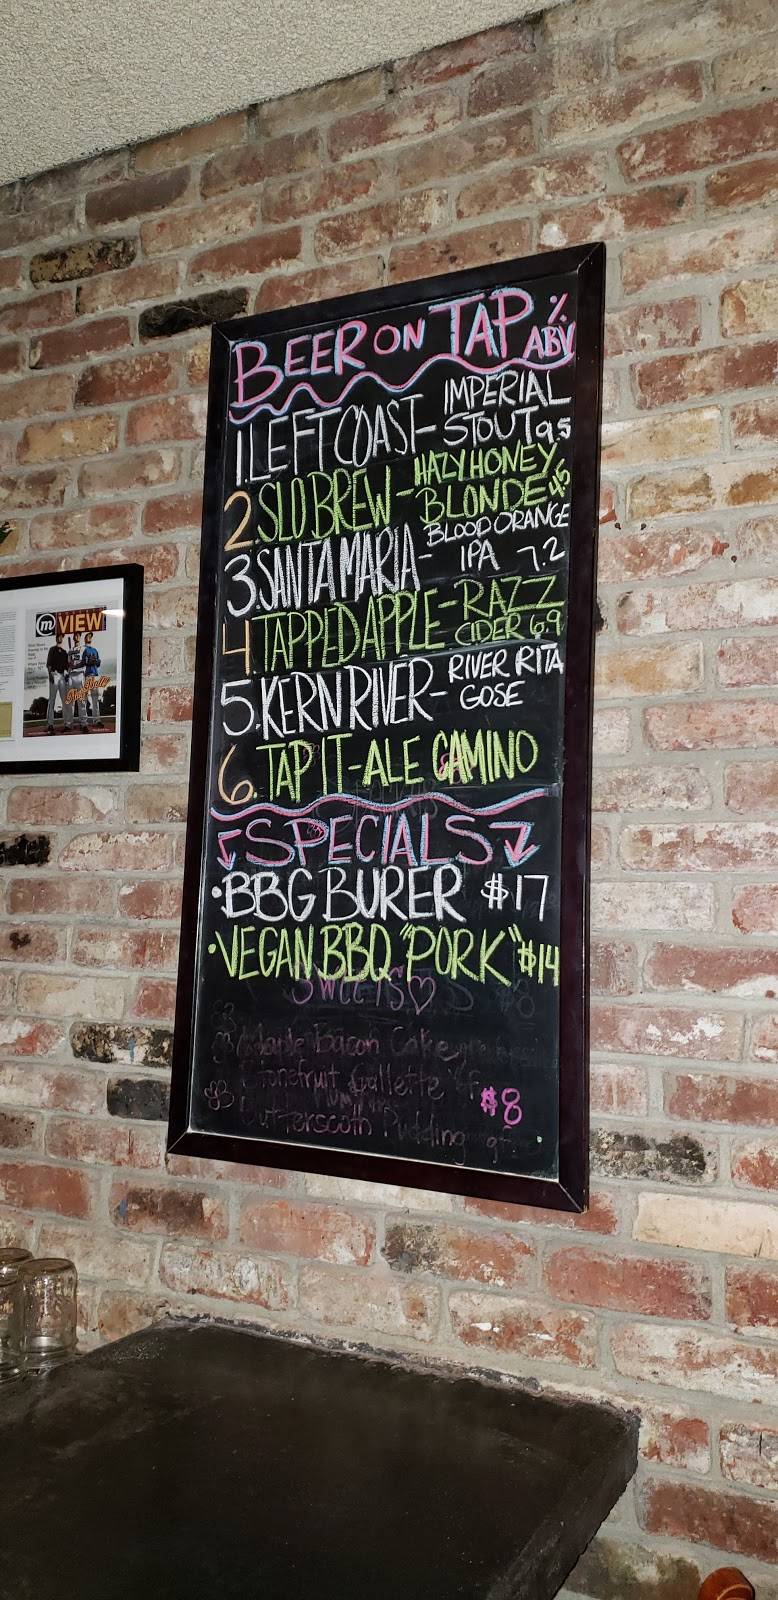 BEER ON TAP % ABV
1. LEFT COAST - IMPERIAL STOUT 9.5
2. SLO BREW - HAZY HONEY BLONDE 4.5
3. SANTA MARIA - BLOOD ORANGE IPA 7.2
4. TAPPED APPLE - RAZZ CIDER 6.9
5. KERN RIVER - RIVER RITA GOSE
6. TAP IT - ALE CAMINO
SPECIALS
• BBG BURER $17
• VEGAN BBQ "PORK" $14
SWEETS
Maple Bacon Cake
Stonefruit Gallette
$8
Butterscoth Pudding
m VIEW